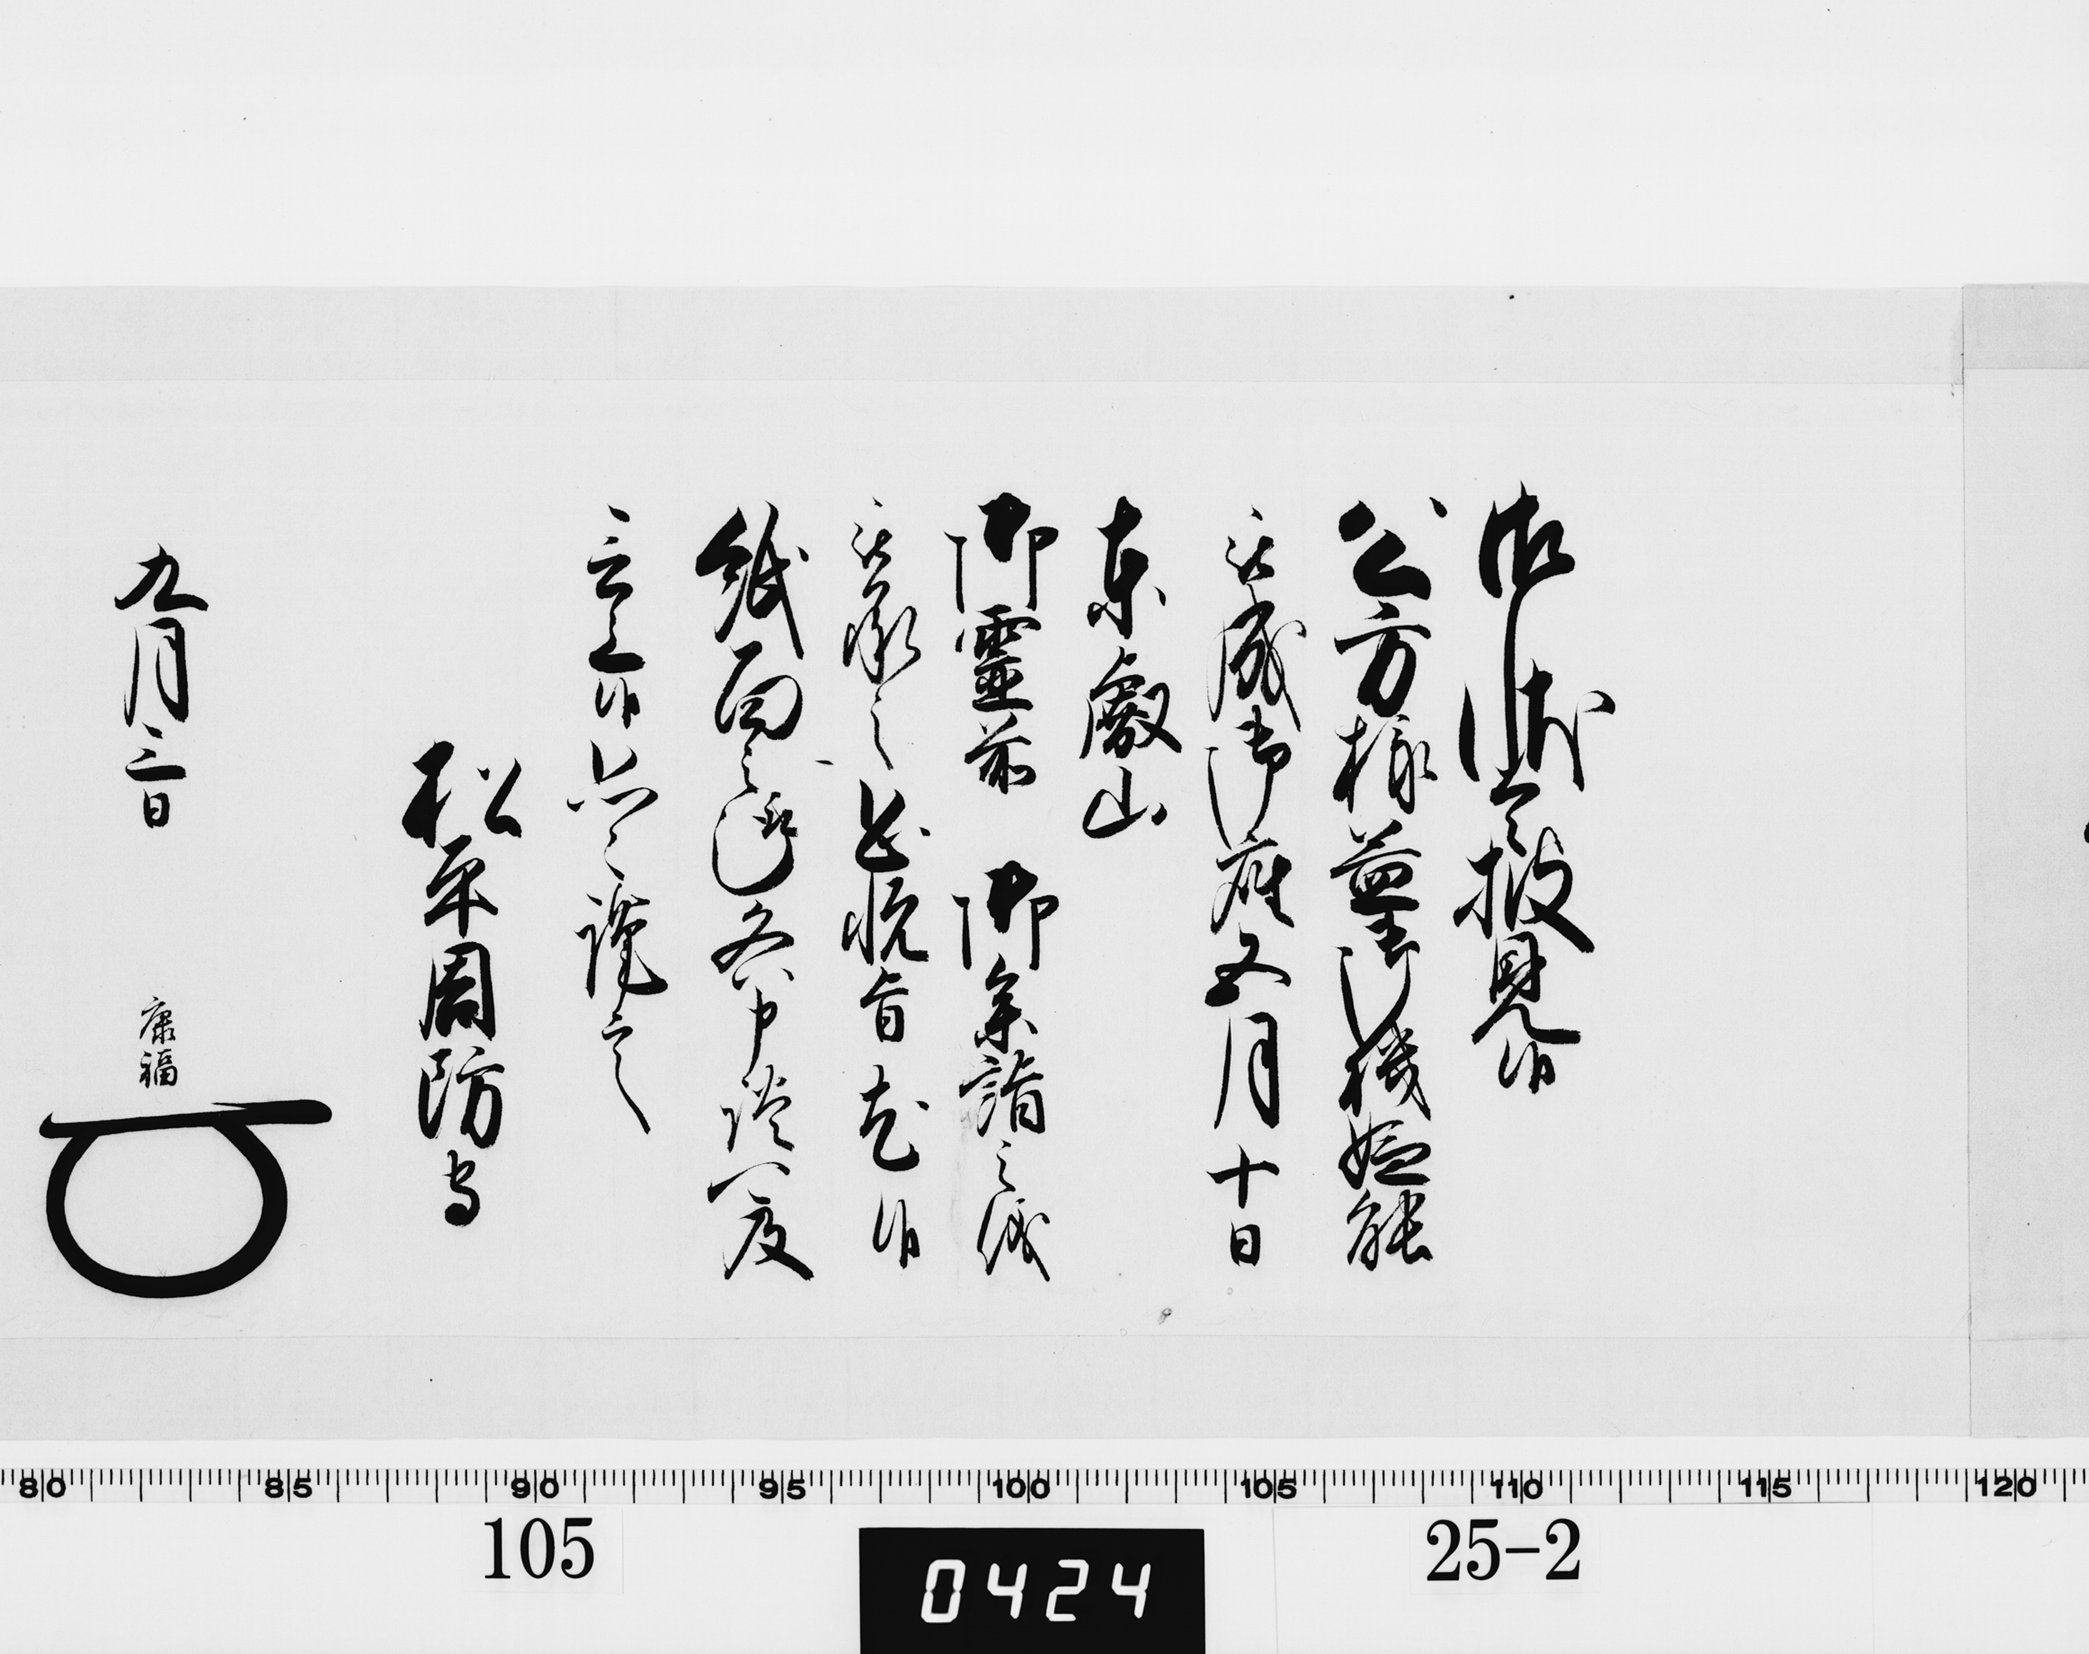 御状令披見候
公方様益御機嫌能
被成御座五月十日
東叡山
御霊前 御参詣之儀
被承之恐悦旨尤候
紙面之趣各申談一同及
言上候恐々謹言
松平周防守
九月三日
康福
80 85 90 95 100 105 110 115 120
105
25-2
0424